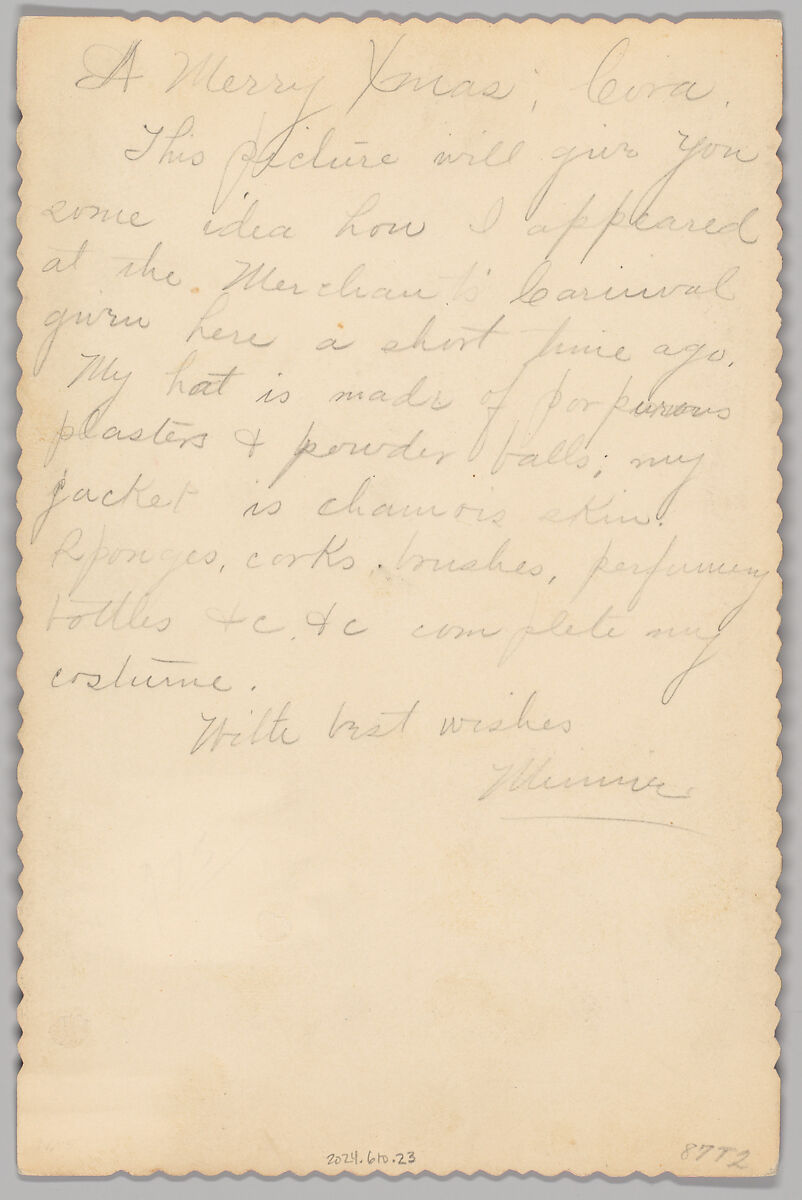 A Merry Xmas, Cora.
This picture will give you
some idea how I appeared
at the Merchants' Carnival
given here a short time ago.
My hat is made of porpurous
plasters & powder balls; my
jacket is chamois skin.
Sponges, corks, brushes, perfumery
bottles &c. &c complete my
costume.
With best wishes
Minnie
2024.610.23
87T2